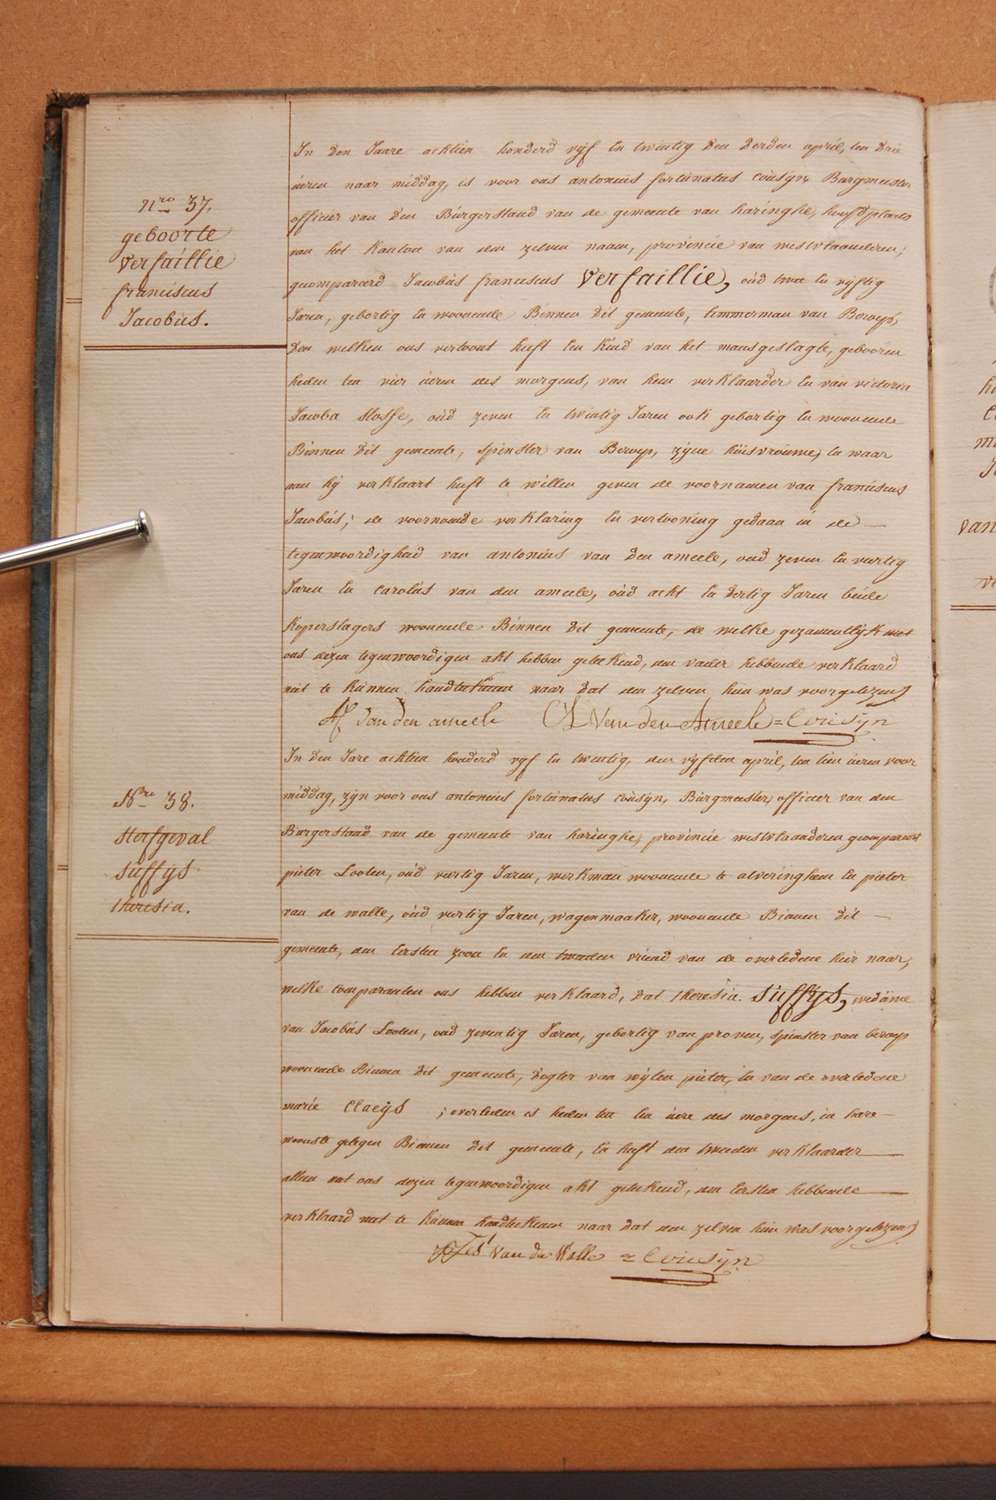 Nro 37.
geboorte
Verfaillie
franciscus
Jacobus.
In den Jaare achtien honderd vijf en twintig den derden april, ten drie
ueren naar middag, is voor ons antonius fortunatus cousyn, Burgmeester
officier van den Bürgerstand van de gemeente van haringhe, hoofdplaets
van het kanton van den zelven naam, provincie van westvlaanderen;
gecompareerd Jacobus franciscus Verfaillie, oüd twee en vijftig
Jaren, gebortig en woonende Binnen dit gemeente, timmerman van Beroep,
den welken ons vertoont heeft een kind van het mansgeslagte, gebooren
heden ten vier üeren des morgens, van hem verklaarder en van victoria
Jacoba Stosse, oüd zeven en twintig Jaren ook gebortig en woonende
Binnen dit gemeente, spinster van Beroep, zijne huisvrouwe, en waar
aan hij verklaart heeft te willen geven de voornamen van franciscus
Jacobus; de voornoemde verklaring en vertooning gedaan in de
tegenwoordigheid van antonius van den ameele, oud zeven en veertig
Jaren en Carolus van den ameele, oüd acht en dertig Jaren beide
koperslagers woonende Binnen dit gemeente, de welke gezamentlijk met
ons dezen tegenwoordigen akt hebben geteekend, den vader hebbende verklaard
niet te künnen handteekenen naar dat den zelven hem was voorgelezen
AF Van den ameele CL Van den Ameele = Cousyn
Nro 38.
sterfgeval
Suffys
theresia.
In den Jare achtien honderd vijf en twintig, den vijfden april, ten tien üeren voor
middag, zijn voor ons antonius fortunatus cousyn, Bürgmeester, officier van den
Bürgerstand van de gemeente van haringhe, provincie westvlaanderen gecompareert
pieter Looten, oüd veertig Jaren, werkman woonende te alveringhem en pieter
van de walle, oüd veertig Jaren, wagenmaaker, woonende Binnen dit
gemeente, den Eersten zoon en den tweeden vriend van de overledene hier naar,
welke comparanten ons hebben verklaard, dat theresia Suffys, wedüwe
van Jacobus Looten, oud zeventig Jaren, gebortig van proven, spinster van beroep
woonende Binnen dit gemeente, dogter van wijlen pieter, en van de overledene
marie Claeys; overleden is heden ten een üere des morgens, in hare
woonste gelegen Binnen dit gemeente, en heeft den tweeden verklaarder
alleen met ons dezen tegenwoordigen akt geteekend, den Eersten hebbende
verklaard niet te künnen handteekenen naar dat den zelven hem was voorgelezen
van de Walle = Cousyn
van